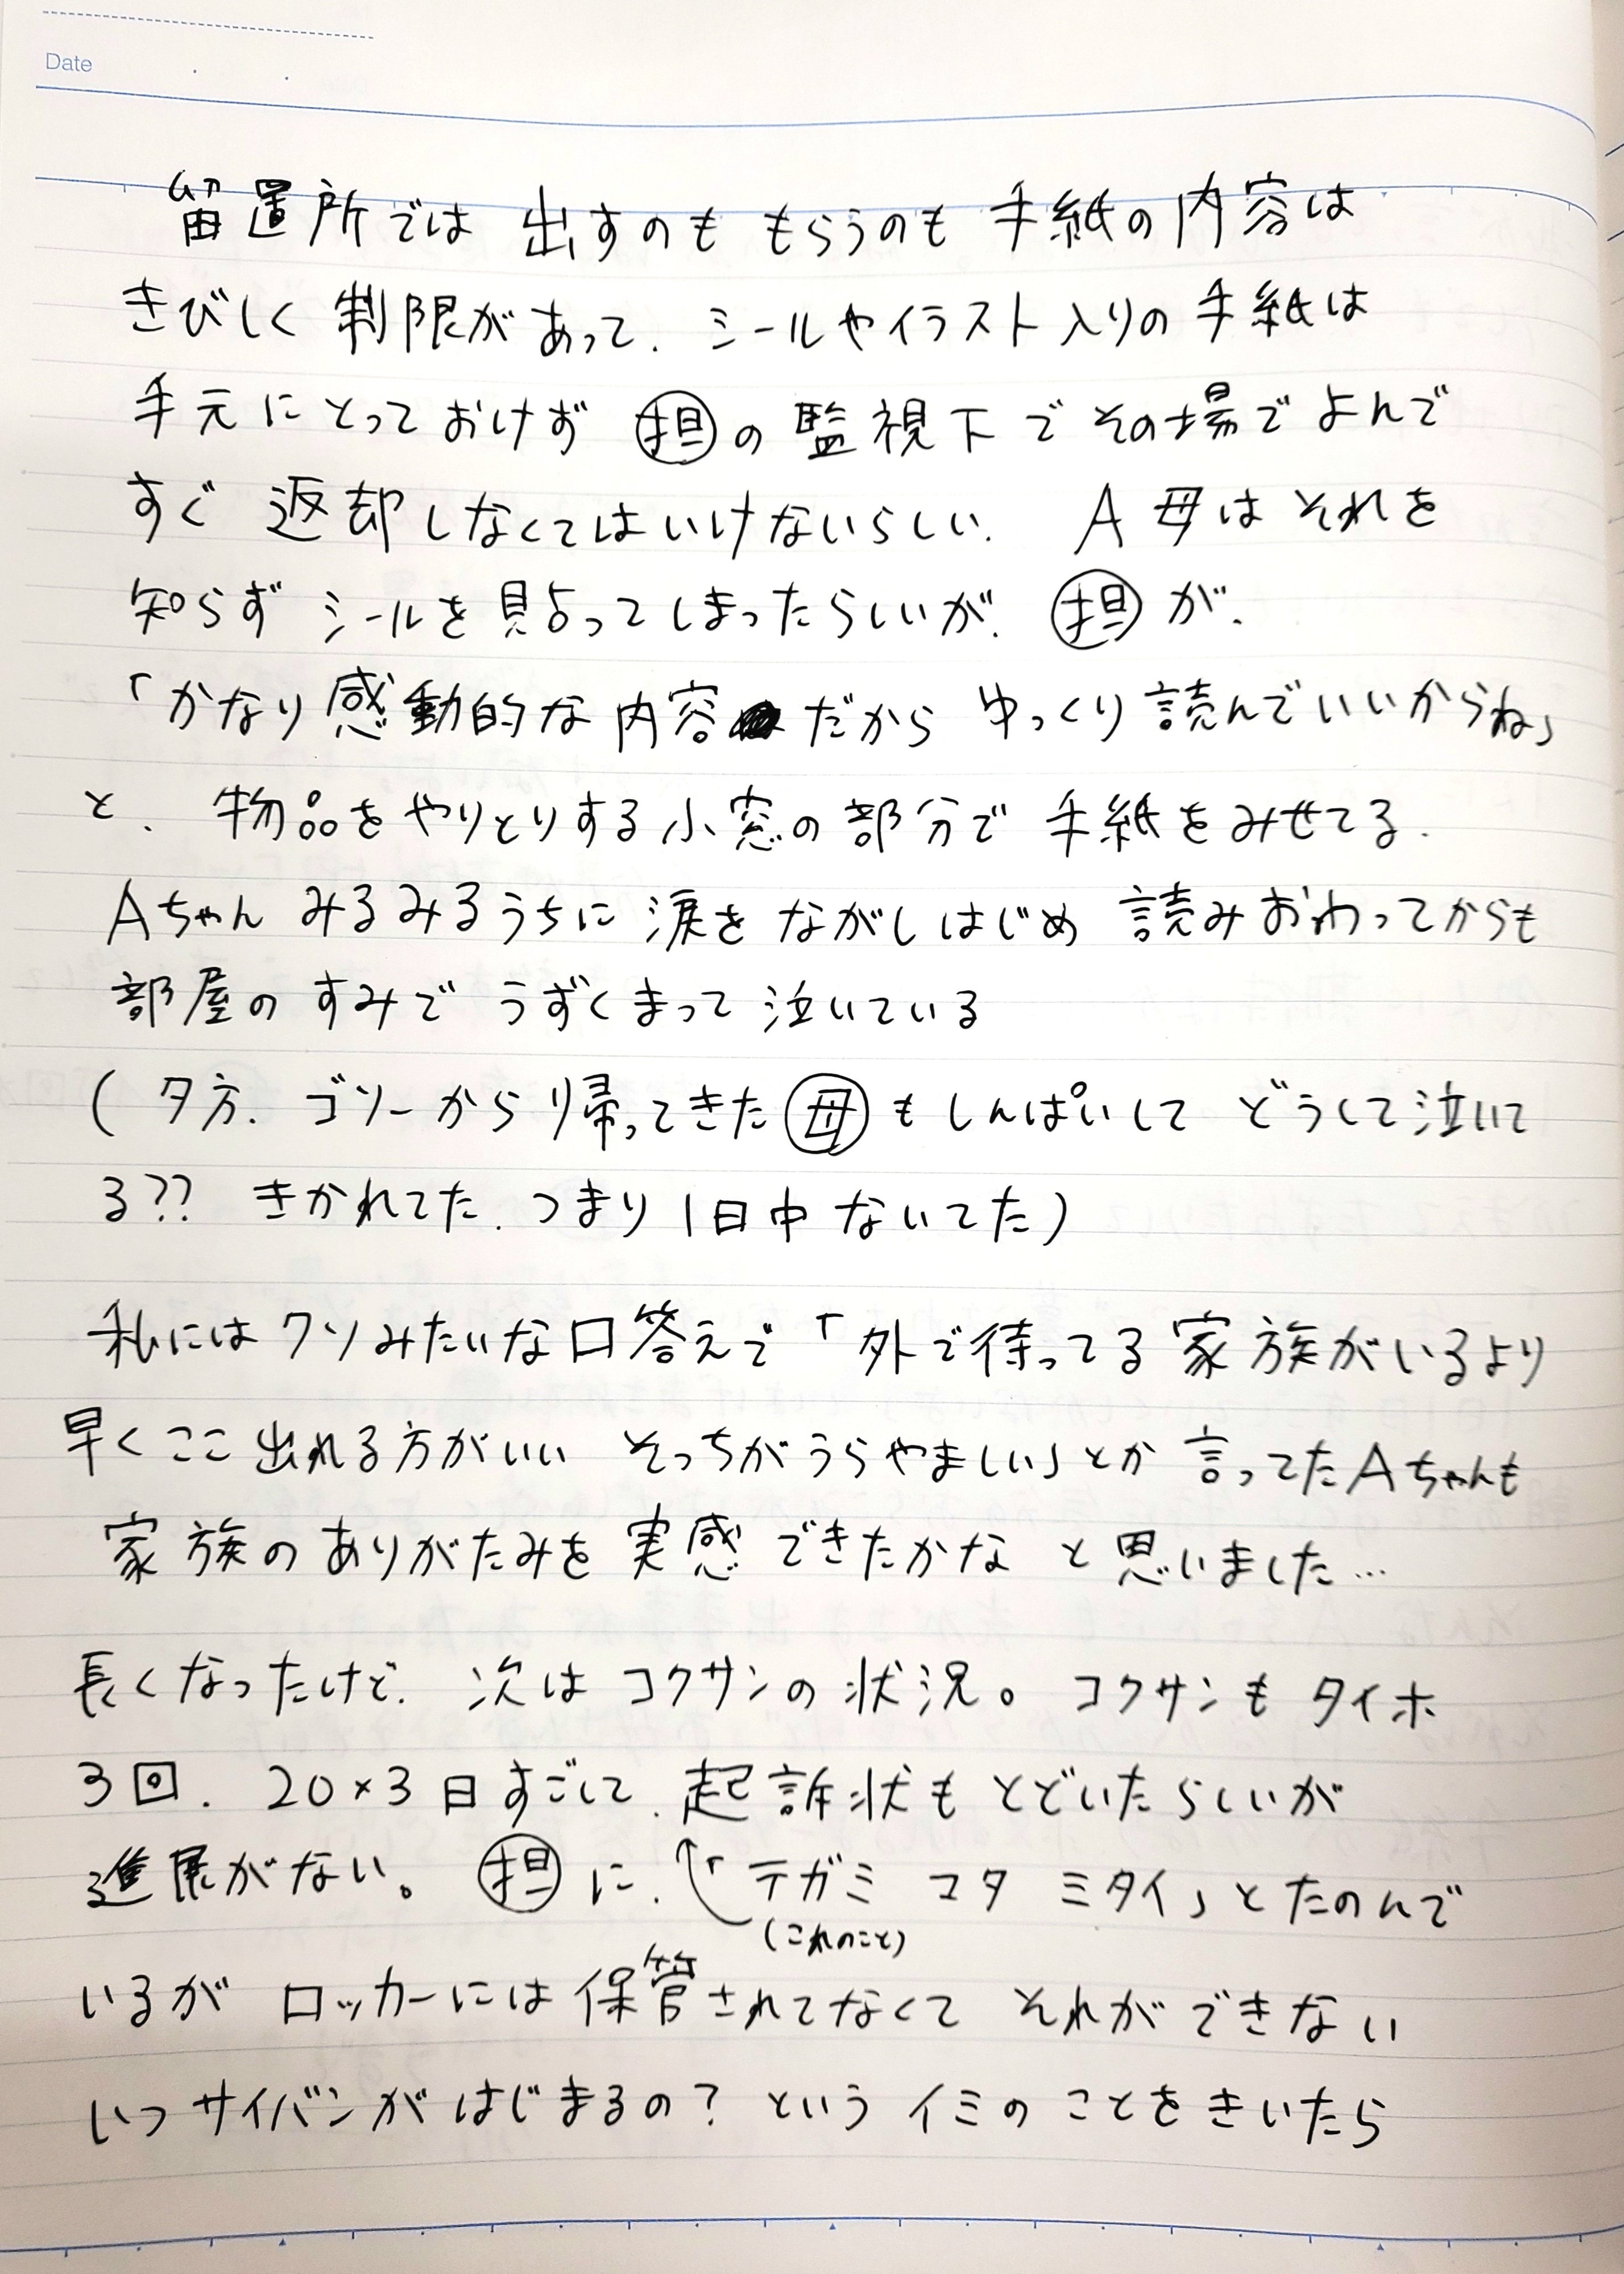 Date
留置所では 出すのも もらうのも 手紙の内容は
きびしく 制限があって、シールやイラスト入りの 手紙は
手元にとって おけず ㊙担の 監視下で その場で よんで
すぐ 返却しなくてはいけないらしい、 A母は それを
知らず シールを 貼ってしまったらしいが、 担 が、
「かなり 感動的な 内容 だから ゆっくり 読んでいいからね」
と、 物品を やりとりする 小窓の 部分で 手紙を みせてる、
Aちゃん みるみるうちに 涙を ながしはじめ 読み おわってからも
部屋の すみで うずくまって 泣いている
(夕方、 ゴソーから 帰ってきた 母 も しんぱいして どうして 泣いて
る?? きかれてた、つまり 1日中 ないてた)
私には クソみたいな 口答えで 「外で 待ってる 家族がいるより
早く ここ 出れる 方がいい そっちがうらやましい」とか 言ってた Aちゃんも
家族の ありがたみを 実感 できたかな と 思いました…
長くなったけど、 次は コクサンの 状況。 コクサンも タイホ
3回、 20×3日 すごして、起訴状も とどいたらしいが
進展がない。 担 に、「テガミ コタ ミタイ」と たのんで
(これのこと)
いるが ロッカーには 保管されてなくて それが できない
いつ サイバンが はじまるの? という イミの ことを きいたら